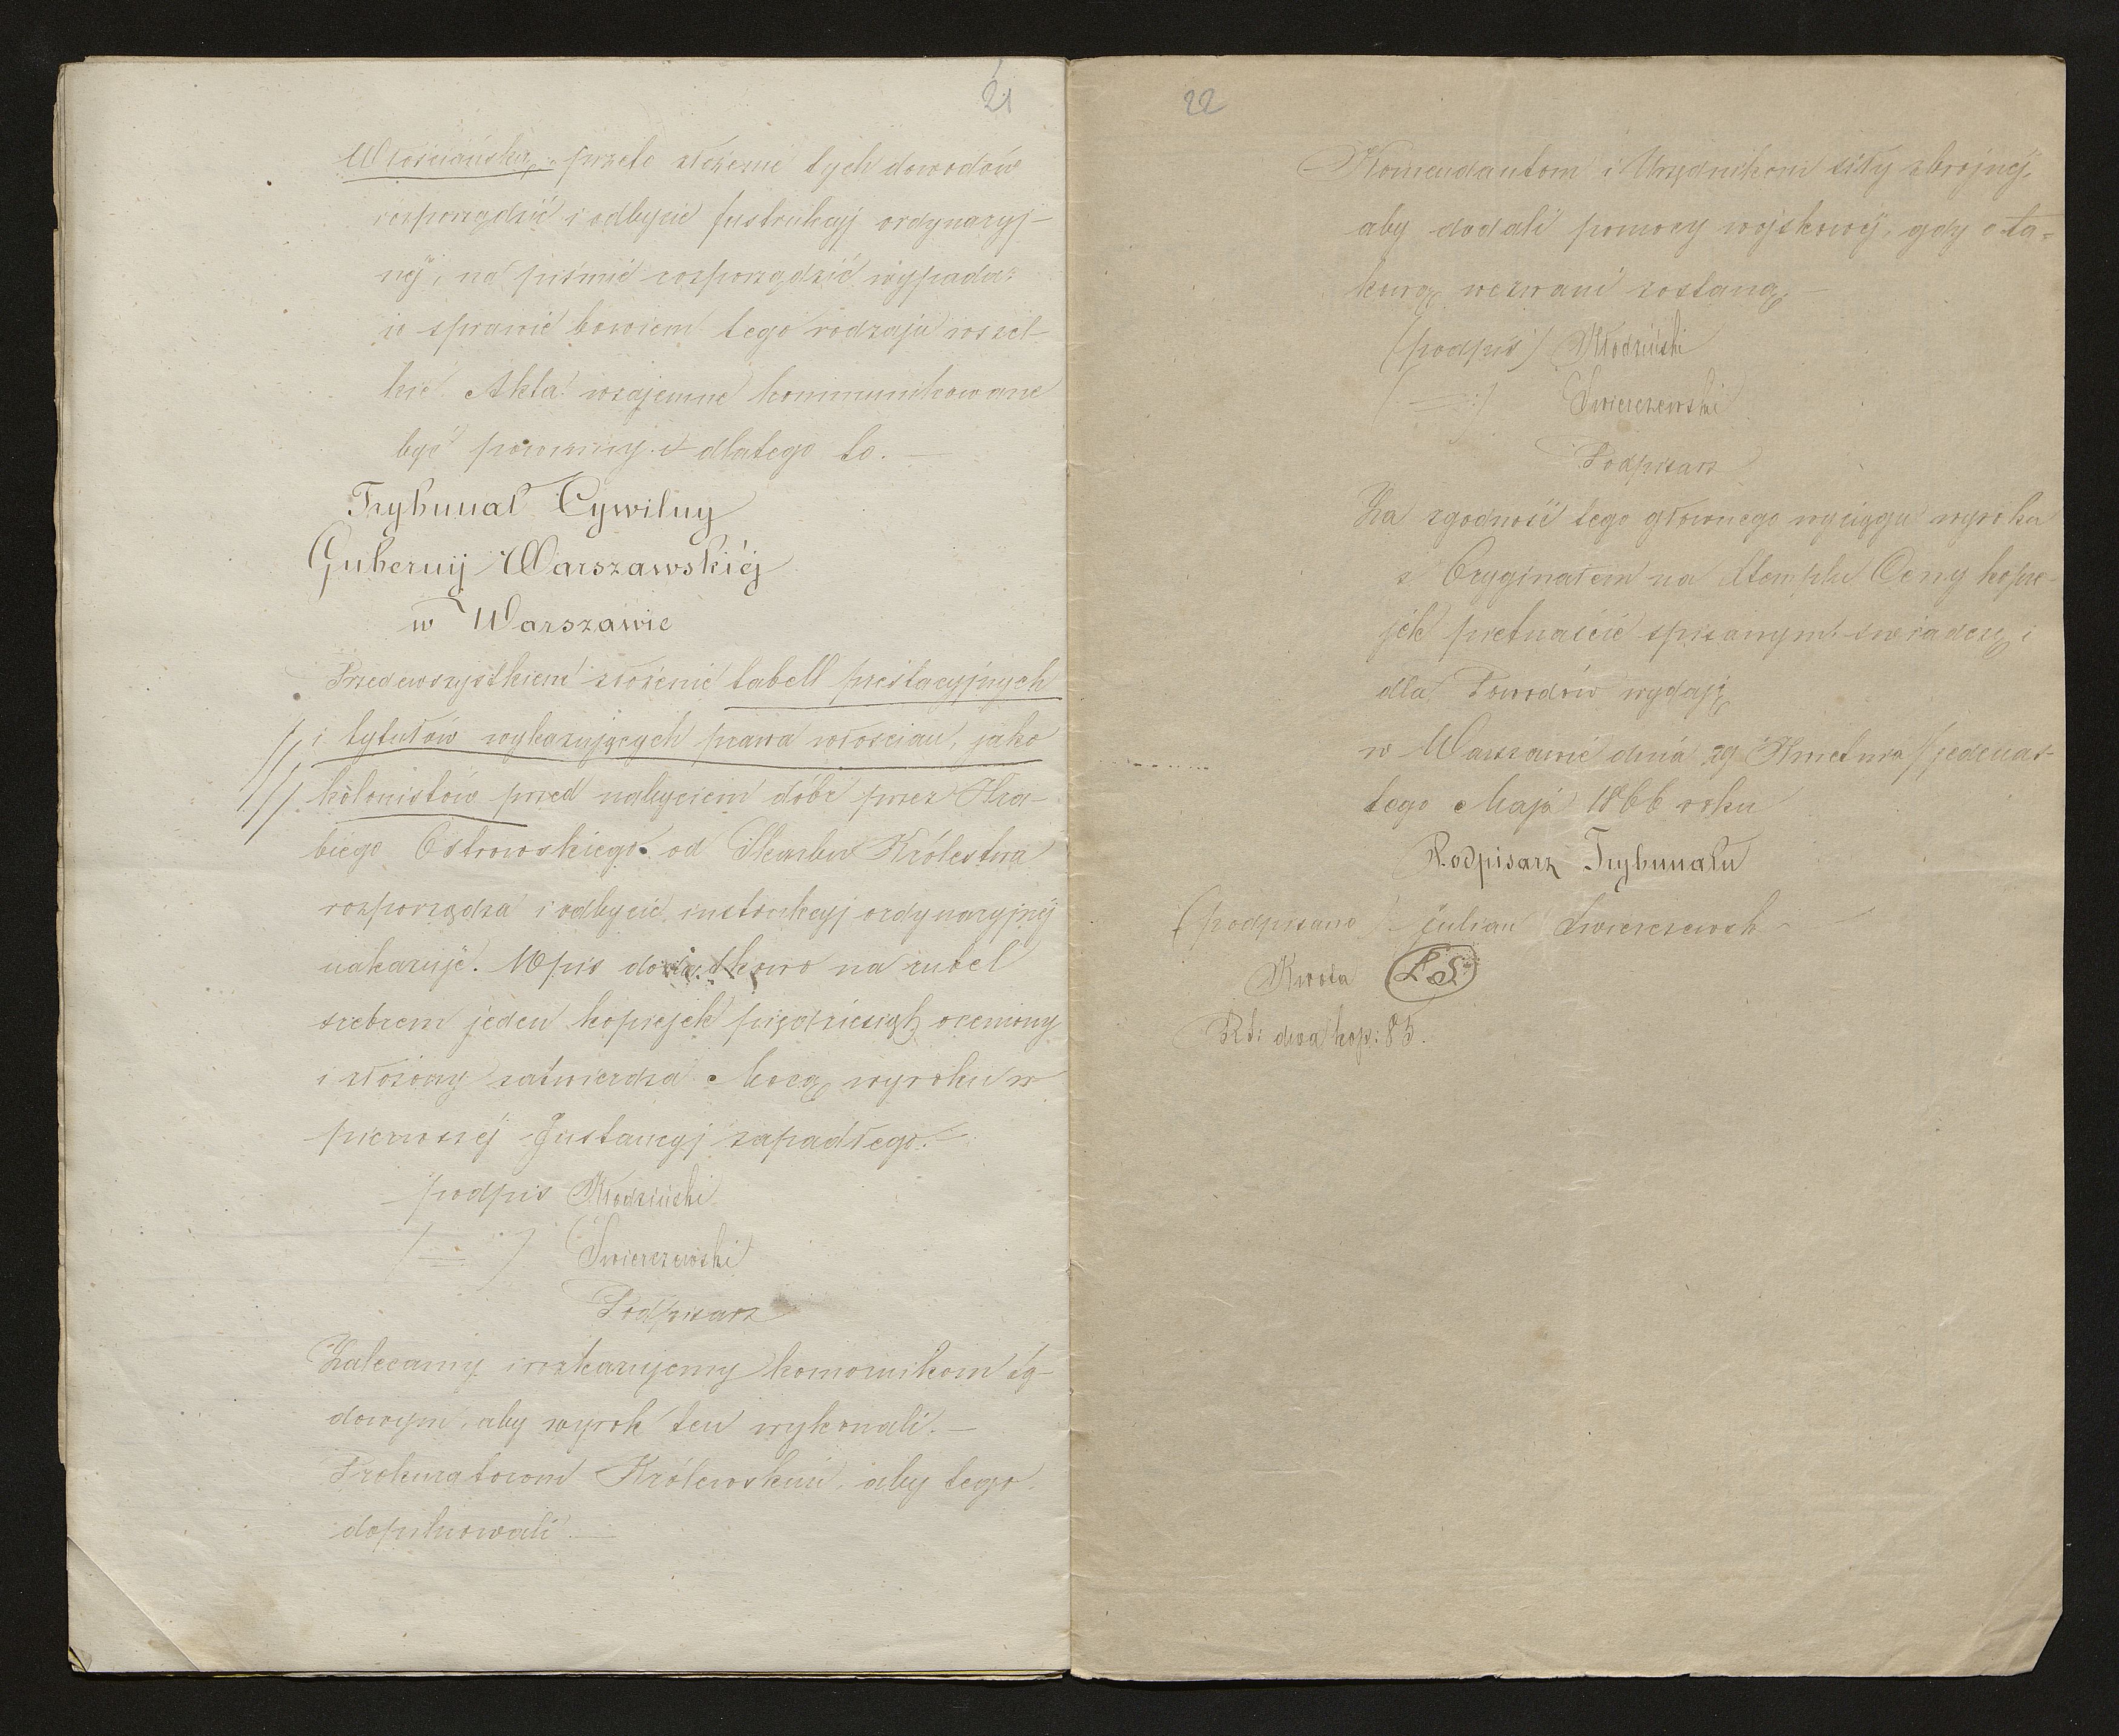 21
Włościańską, przeto złożenie tych dowodów
rozporządzić i odbycie Instrukcyj ordynaryj-
nej, na piśmie rozporządzić wypada:
w sprawie bowiem tego rodzaju wszel-
kie Akta wzajemne kommunikowane
być powinny. dlatego to. —
Trybunał Cywilny
Gubernij Warszawskiéj
w Warszawie
Przedewszystkiem złożenie tabell prestacyjnych
i tytułów wykazujących prawa włościan, jako
kolonistów przed nabyciem dóbr przez Hra-
biego Ostrowskiego od Skarbu Królestwa
rozporządza i odbycie instrukcyj ordynaryjnéj
nakazuje. Wpis dodatkowo na rubel
srebrem jeden kopiejek pięćdziesiąt oceniony
i złożony zatwierdza Mocą wyroku w
pierwszéj Instancyj zapadłego. —
podpis Kłodziński
( = ) Swierczewski
Podpisarz
Zalecamy i rozkazujemy komornikom są-
dowym, aby wyrok ten wykonali. —
Prokuratorom Królewskim, aby tego
dopilnowali —
22
Komendantom i Urzędnikom siły zbrojnéj,
aby dodali pomocy wojskowéj, gdy o ta=
kową wezwani zostaną —
(podpis) Kłodziński
( = :) Swierczewski
Podpisarz
Za zgodność tego głównego wyciągu wyroku
z Oryginałem na Stemplu Ceny kopie-
jek piętnaście spisanym świadczę i
dla Powodów wydaję
w Warszawie dnia 29 Kwietnia / jedenas-
tego Maja 1866 roku
Podpisarz Trybunału
(podpisano) – Julian Swierczewsk –
Kwota L.S.
Rs: dwa kop: 85.